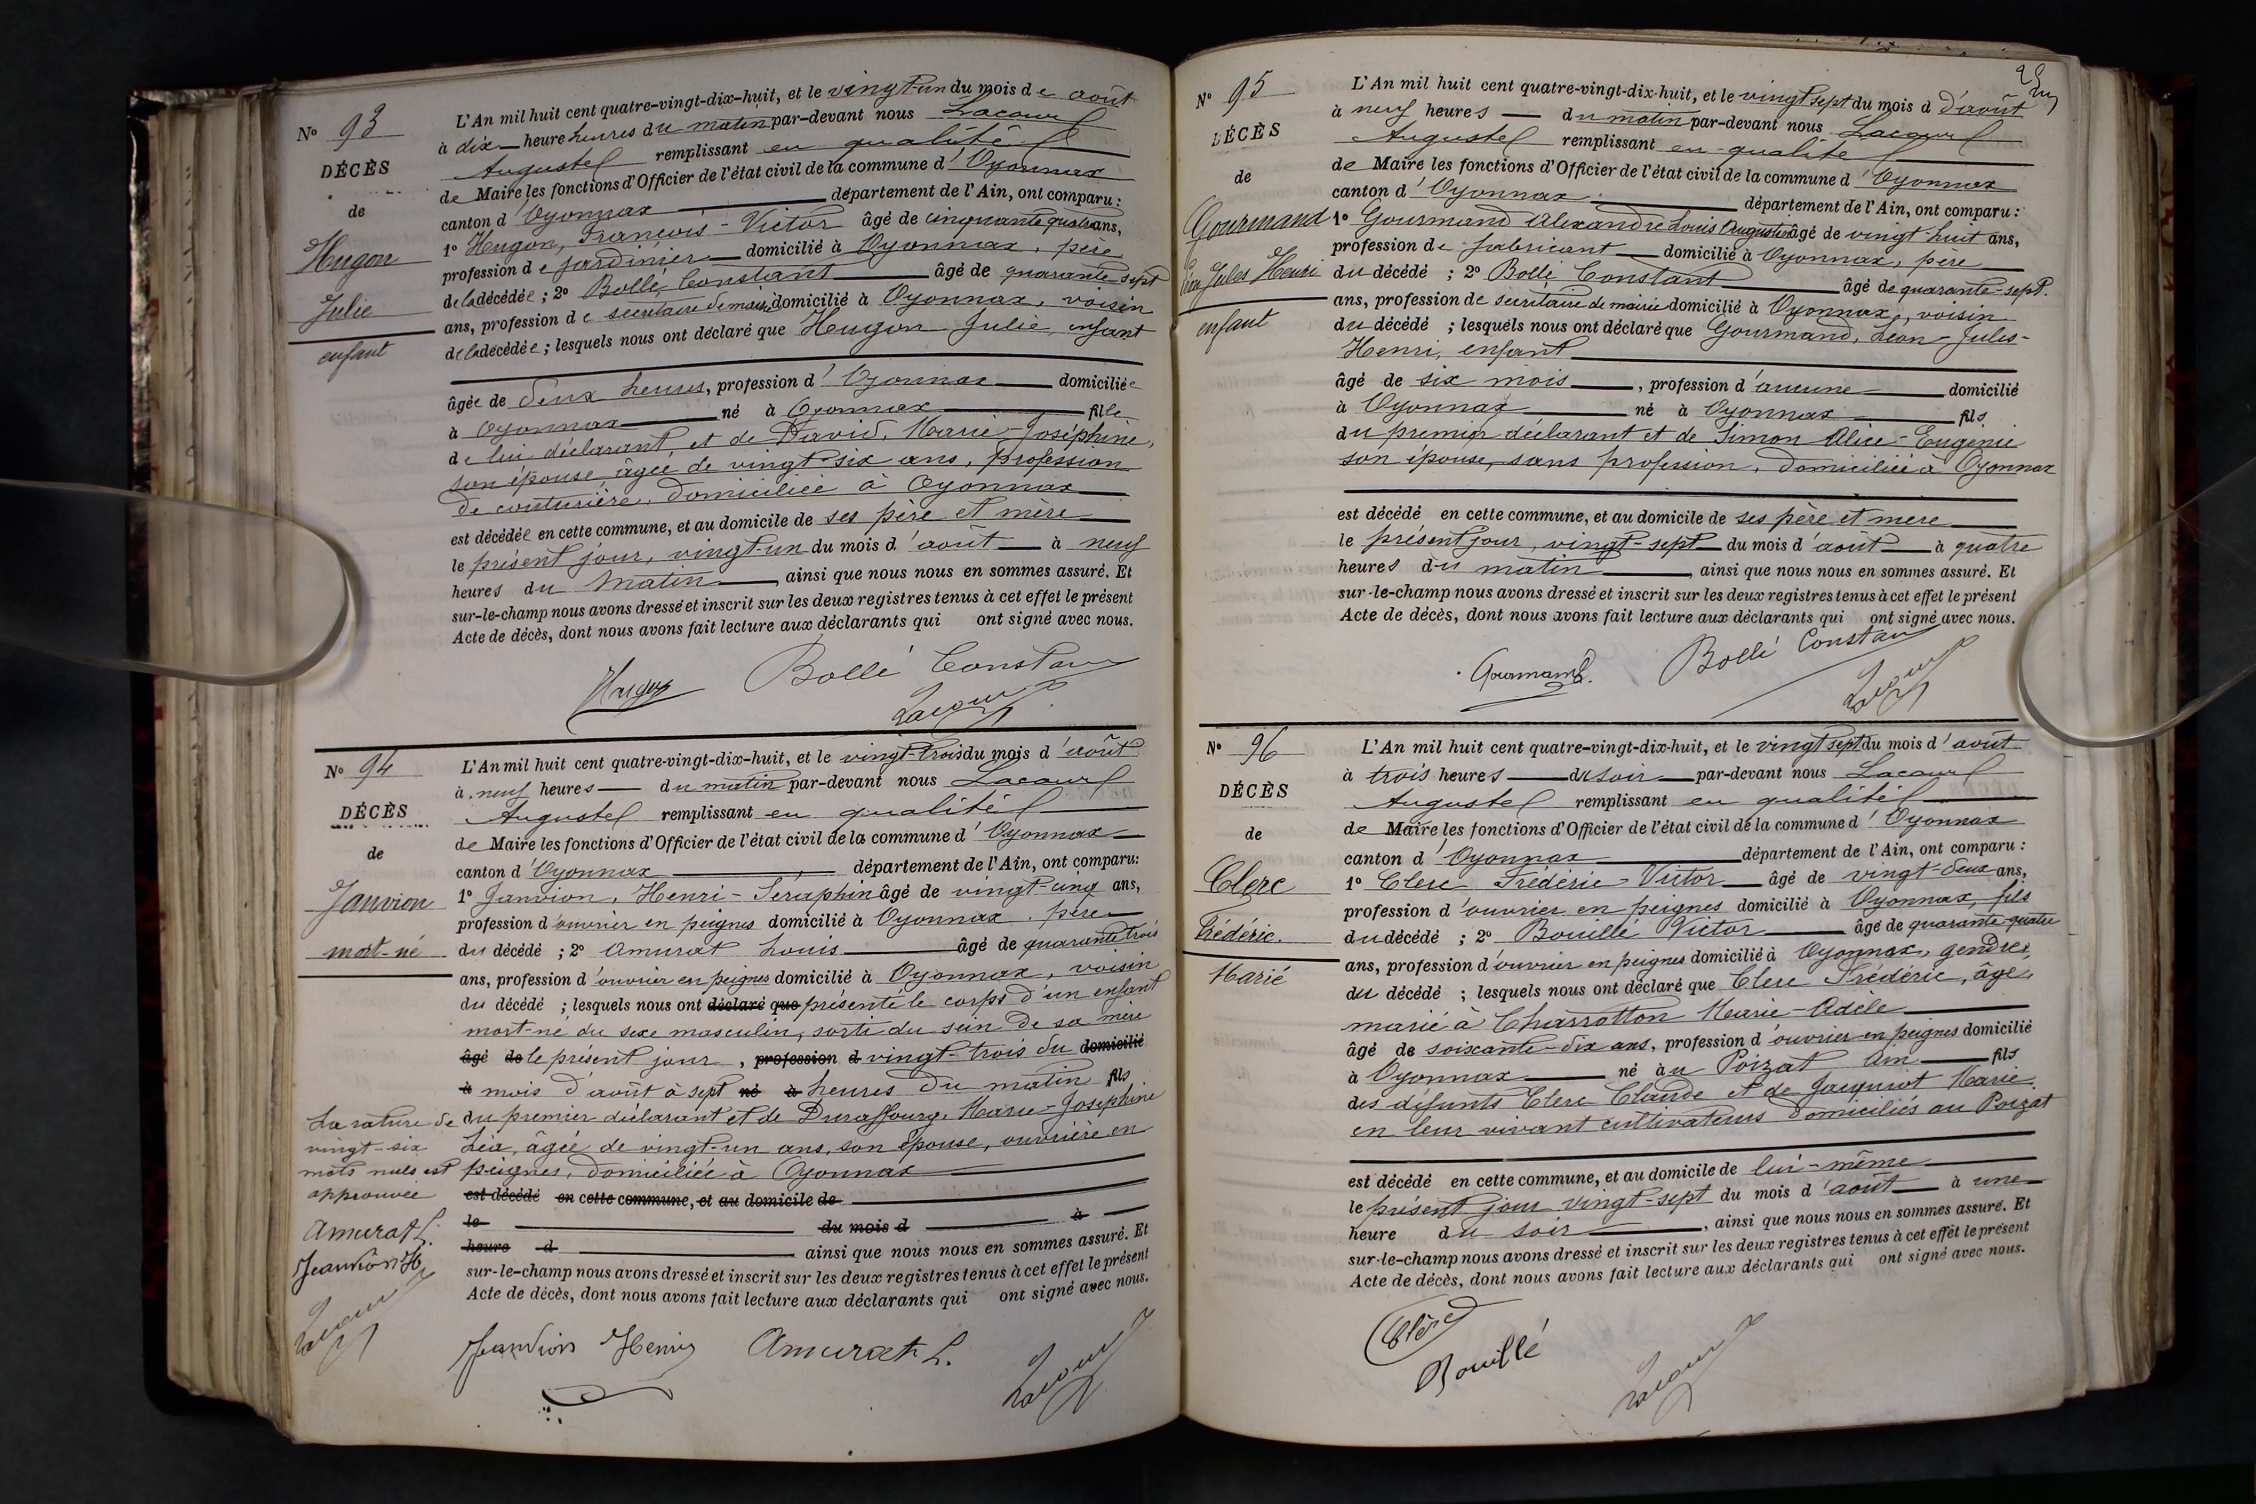 N° 93
DÉCÈS
de
Hugon
Julie
enfant
L'An mil huit cent quatre-vingt-dix-huit, et le vingt-un du mois de août
à dix heure heures du matin par-devant nous Lacour
Auguste remplissant en qualité
de Maire les fonctions d'Officier de l'état civil de la commune d'Oyonnax
canton d'Oyonnax département de l'Ain, ont comparu :
1° Hugon, François-Victor âgé de cinquante quatre ans,
profession de jardinier domicilié à Oyonnax, père
de la décédée ; 2° Bollé, Constant âgé de quarante-sept
ans, profession de secrétaire de mairie domicilié à Oyonnax, voisin
de la décédée ; lesquels nous ont déclaré que Hugon Julie, enfant
âgée de deux heures, profession d'Oyonnax domiciliée
à Oyonnax né à Oyonnax fille
de lui déclarant, et de David, Marie-Joséphine,
son épouse, âgée de vingt-six ans, profession
de couturière, domiciliée à Oyonnax
est décédée en cette commune, et au domicile de ses père et mère
le présent jour, vingt-un du mois d'août à neuf
heures du matin, ainsi que nous nous en sommes assuré. Et
sur-le-champ nous avons dressé et inscrit sur les deux registres tenus à cet effet le présent
Acte de décès, dont nous avons fait lecture aux déclarants qui ont signé avec nous.
Hugon Bollé Constan
Lacour
N° 94
DÉCÈS
de
Janvion
mort-né
L'An mil huit cent quatre-vingt-dix-huit, et le vingt-trois du mois d'août
à neuf heures du matin par-devant nous Lacour
Auguste remplissant en qualité
de Maire les fonctions d'Officier de l'état civil de la commune d'Oyonnax
canton d'Oyonnax département de l'Ain, ont comparu:
1° Janvion, Henri-Séraphin âgé de vingt-cinq ans,
profession d'ouvrier en peignes domicilié à Oyonnax, père
du décédé ; 2° Amurat Louis âgé de quarante trois
ans, profession d'ouvrier en peignes domicilié à Oyonnax, voisin
du décédé ; lesquels nous ont déclaré que présenté le corps d'un enfant
mort-né du sexe masculin, sorti du sein de sa mère
âgé de le présent jour, profession d vingt-trois du domicilié
à mois d'août à sept né à heures du matin fils
du premier déclarant et de Duraffourg, Marie-Joséphine
Léa, âgée de vingt-un ans, son épouse, ouvrière en
peignes, domiciliée à Oyonnax
est décédé en cette commune, et au domicile de
le du mois d à
heure d ainsi que nous nous en sommes assuré. Et
sur-le-champ nous avons dressé et inscrit sur les deux registres tenus à cet effet le présent
Acte de décès, dont nous avons fait lecture aux déclarants qui ont signé avec nous.
La rature de
vingt-six
mots nuls est
approuvée
Amurat L.
Jeanvion H
Lacour
Jeanvion Henri Amurat L.
Lacour
29
N° 95
DÉCÈS
de
Gourmand
Léon Jules Henri
enfant
L'An mil huit cent quatre-vingt-dix-huit, et le vingt sept du mois d d'août
à neuf heures du matin par-devant nous Lacour
Auguste remplissant en qualité
de Maire les fonctions d'Officier de l'état civil de la commune d'Oyonnax
canton d'Oyonnax département de l'Ain, ont comparu :
1° Gourmand Alexandre Louis Augustin âgé de vingt-huit ans,
profession de fabricant domicilié à Oyonnax, père
du décédé ; 2° Bollé Constant âgé de quarante-sept.
ans, profession de secrétaire de mairie domicilié à Oyonnax, voisin
du décédé ; lesquels nous ont déclaré que Gourmand, Léon-Jules-
Henri, enfant
âgé de six mois, profession d'aucune domicilié
à Oyonnax né à Oyonnax fils
du premier déclarant et de Simon Alice-Eugénie
son épouse, sans profession, domiciliée à Oyonnax
est décédé en cette commune, et au domicile de ses père et mère
le présent jour, vingt-sept du mois d'août à quatre
heures du matin, ainsi que nous nous en sommes assuré. Et
sur-le-champ nous avons dressé et inscrit sur les deux registres tenus à cet effet le présent
Acte de décès, dont nous avons fait lecture aux déclarants qui ont signé avec nous.
Gourmand. Bollé Constan
Lacour
N° 96
DÉCÈS
de
Clerc
Frédéric.
Marié
L'An mil huit cent quatre-vingt-dix-huit, et le vingt sept du mois d'août
à trois heures du soir par-devant nous Lacour
Auguste remplissant en qualité
de Maire les fonctions d'Officier de l'état civil de la commune d'Oyonnax
canton d'Oyonnax département de l'Ain, ont comparu :
1° Clerc Frédéric-Victor âgé de vingt-deux ans,
profession d'ouvrier en peignes domicilié à Oyonnax, fils
du décédé ; 2° Bouillé Victor âgé de quarante-quatre
ans, profession d'ouvrier en peignes domicilié à Oyonnax, gendre
du décédé ; lesquels nous ont déclaré que Clerc Frédéric, âgé
marié à Charrotton Marie-Adèle
âgé de soixante-dix ans, profession d'ouvrier en peignes domicilié
à Oyonnax né au Poizat Ain fils
des défunts Clerc Claude et de Jacquiot Marie
en leur vivant cultivateurs domiciliés au Poizat
est décédé en cette commune, et au domicile de lui-même
le présent jour vingt-sept du mois d'août à une
heure du soir, ainsi que nous nous en sommes assuré. Et
sur-le-champ nous avons dressé et inscrit sur les deux registres tenus à cet effet le présent
Acte de décès, dont nous avons fait lecture aux déclarants qui ont signé avec nous.
Clerc
Bouillé
Lacour